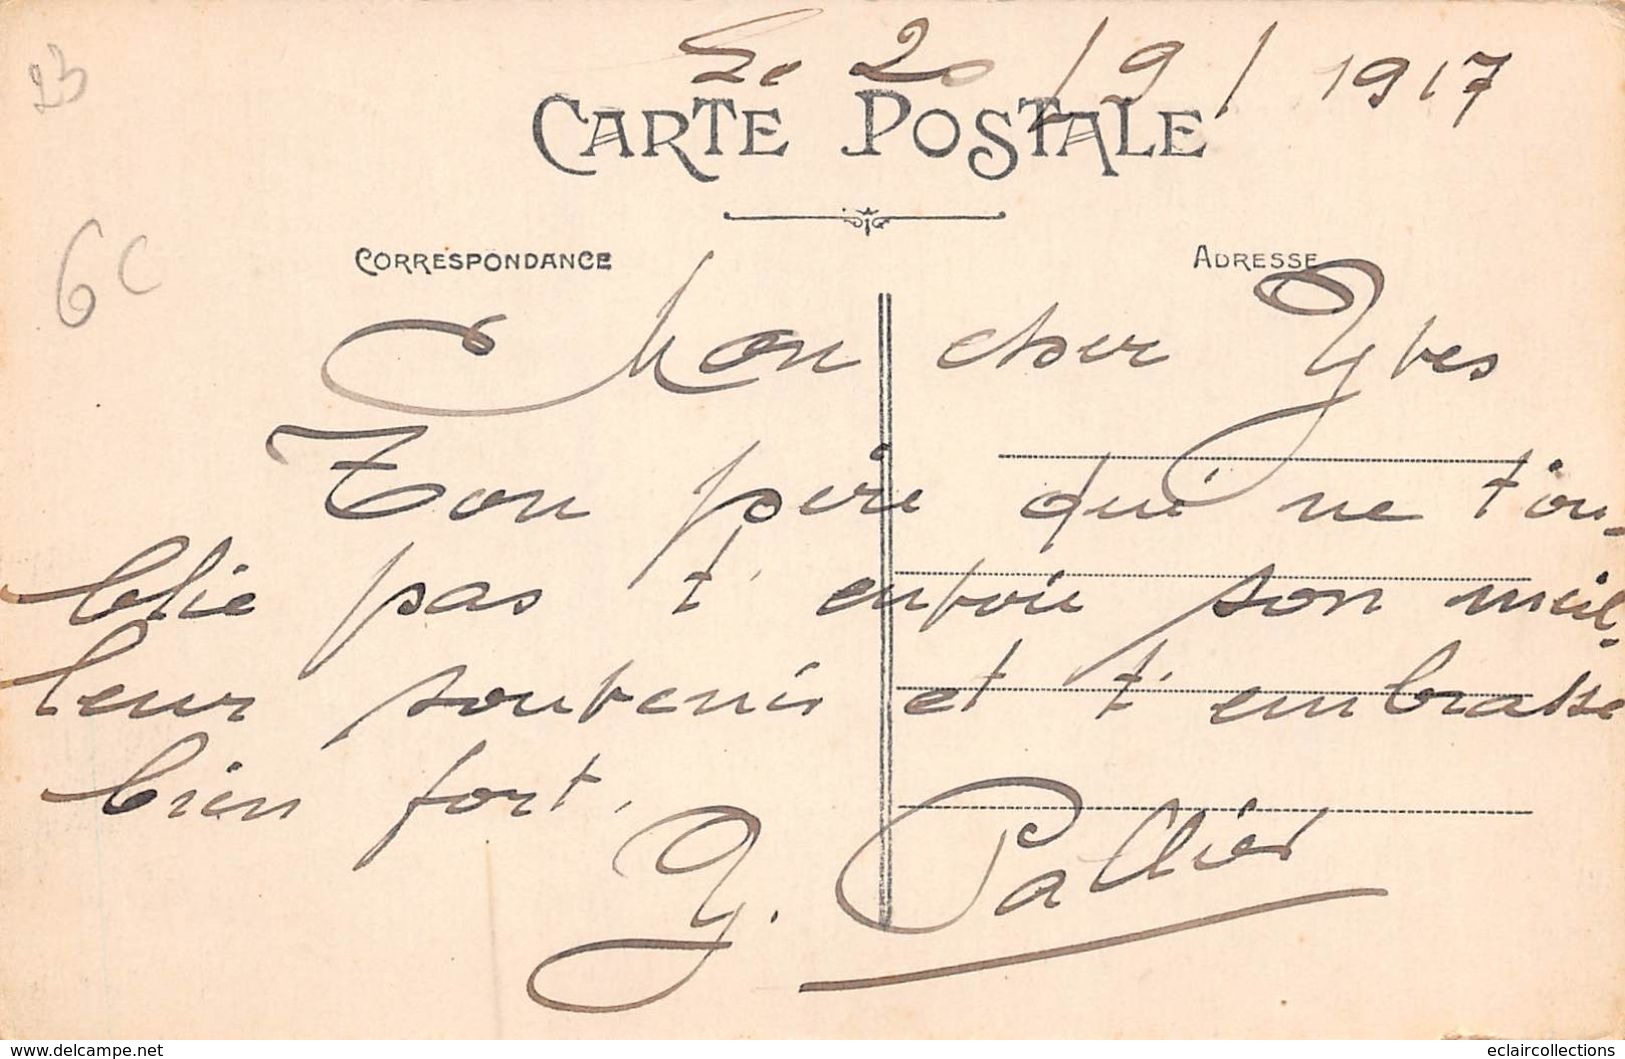 Le 20/9/1917
CARTE POSTALE
CORRESPONDANCE
ADRESSE
23
6C
Mon cher Yves
Ton père qui ne t'ou-
blie pas t'envoie son meil-
leur souvenir et t'embrasse
bien fort.
Y. Pallier
www.delcampe.net
eclaircollections